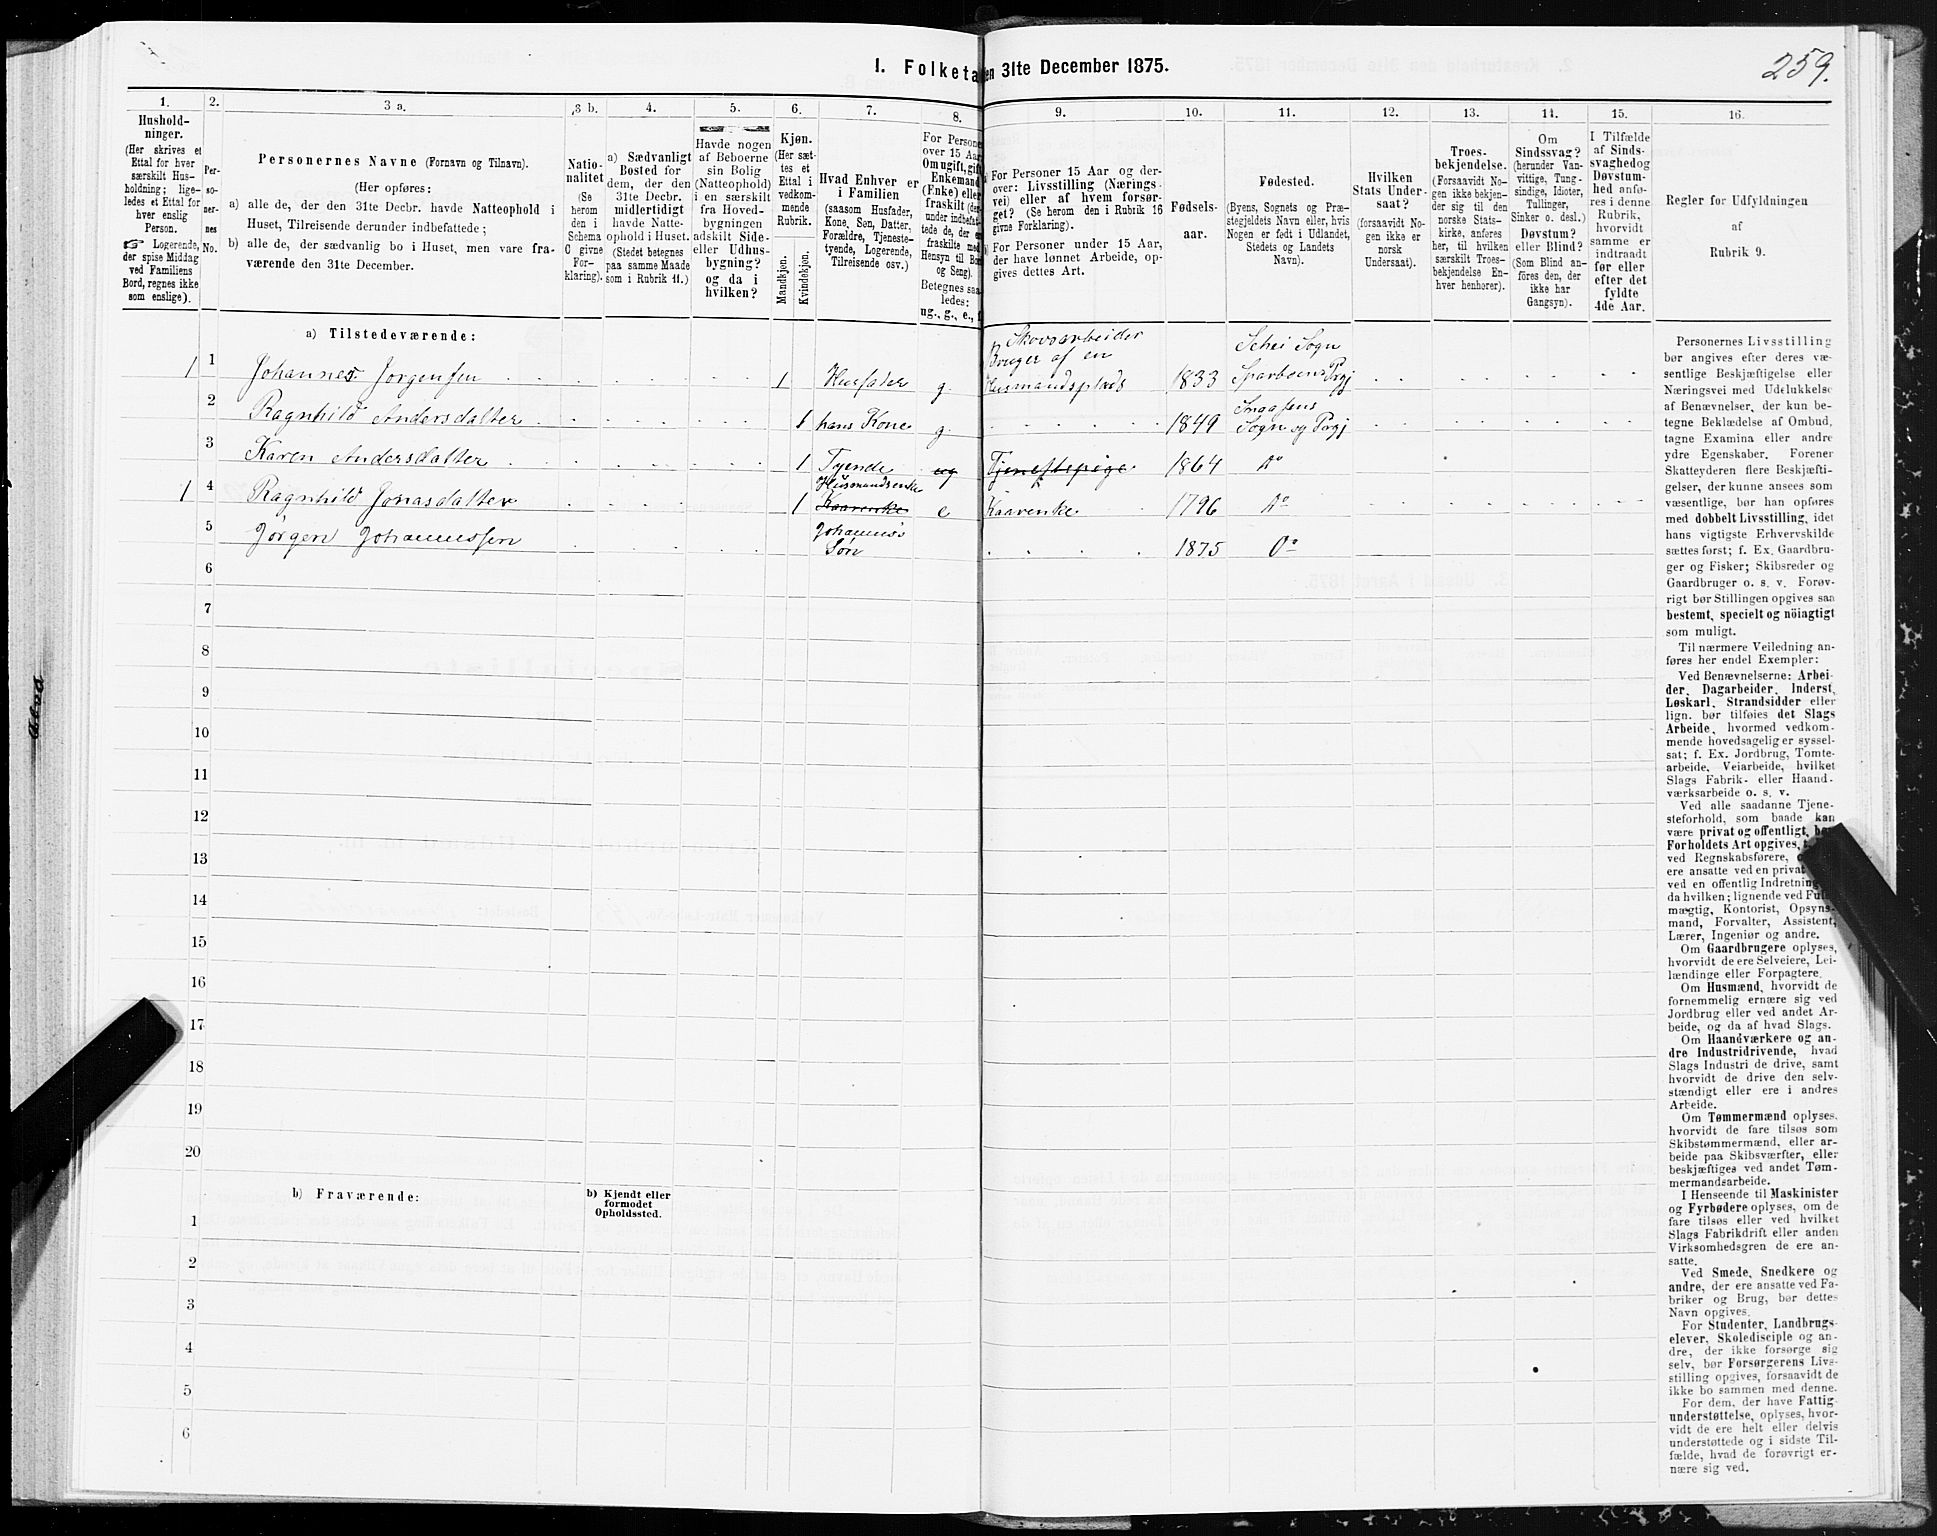 259.
I. Folketa en 31te December 1875.
1. 2. 3 a. 3 b. 4. 5. 6. 7. 8. 9. 10. 11. 12. 13. 14. 15. 16.
Hushold-
ninger.
(Her skrives et
Ettal for hver
særskilt Hus-
holdning; lige-
ledes et Ettal for
hver enslig
Person.
☞ Logerende,
der spise Middag
ved Familiens
Bord, regnes ikke
som enslige).
Per-
so-
ner-
nes
No.
Personernes Navne (Fornavn og Tilnavn).
(Her opføres:
a) alle de, der den 31te Decbr. havde Natteophold i
Huset, Tilreisende derunder indbefattede;
b) alle de, der sædvanlig bo i Huset, men vare fra-
værende den 31te December.
Natio-
nalitet
(Se
herom
den i
Schema
C givne
For-
klaring).
a) Sædvanligt
Bosted for
dem, der den
31te Decbr.
midlertidigt
havde Natte-
ophold i Huset.
(Stedet betegnes
paa samme Maade
som i Rubrik 11.)
Havde nogen
af Beboerne
sin Bolig
(Natteophold)
i en særskilt
fra Hoved-
bygningen
adskilt Side-
eller Udhus-
bygning?
og da i
hvilken?
Kjøn.
(Her sæt-
tes et
Ettal i
vedkom-
mende
Rubrik.
Mandkjøn.
Kvindekjøn.
Hvad Enhver er
i Familien
(saasom Husfader,
Kone, Søn, Datter,
Forældre, Tjeneste-
tyende, Logerende,
Tilreisende osv.)
For Persone
over 15 Aar
Om ugift, gift
Enkemand
(Enke) eller
fraskilt (der-
under indbefat-
tede de, der er
fraskilte med
Hensyn til Bor
og Seng).
Betegnes saa-
ledes:
ug., g., e., f
a) For Personer 15 Aar og der-
over: Livsstilling (Nærings-
vei) eller af hvem forsør-
get? (Se herom den i Rubrik 16
givne Forklaring).
b) For Personer under 15 Aar,
der have lønnet Arbeide, op-
gives dettes Art.
Fødsels-
aar.
Fødested.
(Byens, Sognets og Præ-
stegjeldets Navn eller, hvis
Nogen er født i Udlandet,
Stedets og Landets
Navn).
Hvilken
Stats Under-
saat?
(forsaavidt No-
gen ikke er
norsk
Undersaat).
Troes-
bekjendelse.
(Forsaavidt No-
gen ikke bekjen-
der sig til den
norske Stats-
kirke, anføres
her, til hvilken
særskilt Troes-
bekjendelse En-
hver henhører).
Om
Sindssvag?
(herunder Van-
vittige, Tung-
sindige, Idioter,
Tullinger,
Sinker o. desl.)
Døvstum?
eller Blind?
(Som Blind an-
føres den, der
ikke har
Gangsyn).
I Tilfælde
af Sinds-
svaghed og
Døvstum-
hed anfø-
res i denne
Rubrik,
hvorvidt
samme er
indtraadt
før eller
efter det
fyldte
4de Aar.
Regler for Udfyldningen
af
Rubrik 9.
a) Tilstedeværende:
1 1 Johannes Jorgensen 1 Husfader g. Skovsarbeider Bruger af en Husmandsplads 1833 Schei Sogn Sparboens Prgj
2 Ragnhild Andersdatter 1 hans Kone g. 1849 Snaasens Sogn og Prgj
3 Karen Andersdatter 1 Tyende ug Tjenestepige 1864 Do
1 4 Ragnhild Jonasdatter 1 Husmandsenke Kaarenke e Kaarenke 1796 Do
5 Jørgen Johannessen Johannes's Søn 1875 Do
6
7
8
9
10
11
12
13
14
15
16
17
18
19
20
b) Fraværende:
b) Kjendt eller
formodet
Opholdssted.
1
2
3
4
5
6
Personernes Livsstilling
bør angives efter deres væ-
sentlige Beskjæftigelse eller
Næringsvei med Udelukkelse
af Benævnelser, der kun be-
tegne Beklædelse af Ombud,
tagne Examina eller andre
ydre Egenskaber. Forener
Skatteyderen flere Beskjæfti-
gelser, der kunne ansees som
væsentlige, bør han opføres
med dobbelt Livsstilling, idet
hans vigtigste Erhvervskilde
sættes først; f. Ex. Gaardbru-
ger og Fisker; Skibsreder og
Gaardbruger o. s. v. Forøv-
rigt bør Stillingen opgives saa
bestemt, specielt og nöiagtigt
som muligt.
Til nærmere Veiledning an-
føres her endel Exempler:
Ved Benævnelserne: Arbei-
der, Dagarbeider, Inderst,
Løskarl, Strandsidder eller
lign. bør tilføies det Slags
Arbeide, hvormed vedkom-
mende hovedsagelig er syssel-
sat; f. Ex. Jordbrug, Tomte-
arbeide, Veiarbeide, hvilket
Slags Fabrik- eller Haand-
værksarbeide o. s. v.
Ved alle saadanne Tjene-
steforhold, som baade kan
være privat og offentligt, bør
Forholdets Art opgives,
ved Regnskabsførere,
ere ansatte ved en privat
ved en offentlig Indretning
da hvilken; lignende ved Ful-
mægtig, Kontorist, Opsyns-
mand, Forvalter, Assistent,
Lærer, Ingeniør og andre.
Om Gaardbrugere oplyses,
hvorvidt de ere Selveiere, Lei-
lændinge eller Forpagtere.
Om Husmænd, hvorvidt de
fornemmelig ernære sig ved
Jordbrug eller ved andet Ar-
beide, og da af hvad Slags.
Om Haandværkere og an-
dre Industridrivende, hvad
Slags Industri de drive, samt
hvorvidt de drive den selv-
stændigt eller ere i andres
Arbeide.
Om Tømmermænd oplyses,
hvorvidt de fare tilsøs som
Skibstømmermænd, eller ar-
beide paa Skibsværfter, eller
beskjæftiges ved andet Tøm-
mermandsarbeide.
I Henseende til Maskinister
og Fyrbødere oplyses, om de
fare tilsøs eller ved hvilket
Slags Fabrikdrift eller anden
Virksomhedsgren de ere an-
satte.
Ved Smede, Snedkere og
andre, der ere ansatte ved Fa-
briker og Brug, bør dettes
Navn opgives.
For Studenter, Landbrugs-
elever, Skoledisciple og an-
dre, der ikke forsørge sig
selv, bør Forsørgerens Livs-
stilling opgives, forsaavidt de
ikke bo sammen med denne.
For dem, der have Fattig-
understøttelse, oplyses, hvor-
vidt de ere helt eller delvis
understøttede og i sidste Til-
fælde, hvad de forøvrigt er-
nære sig ved.